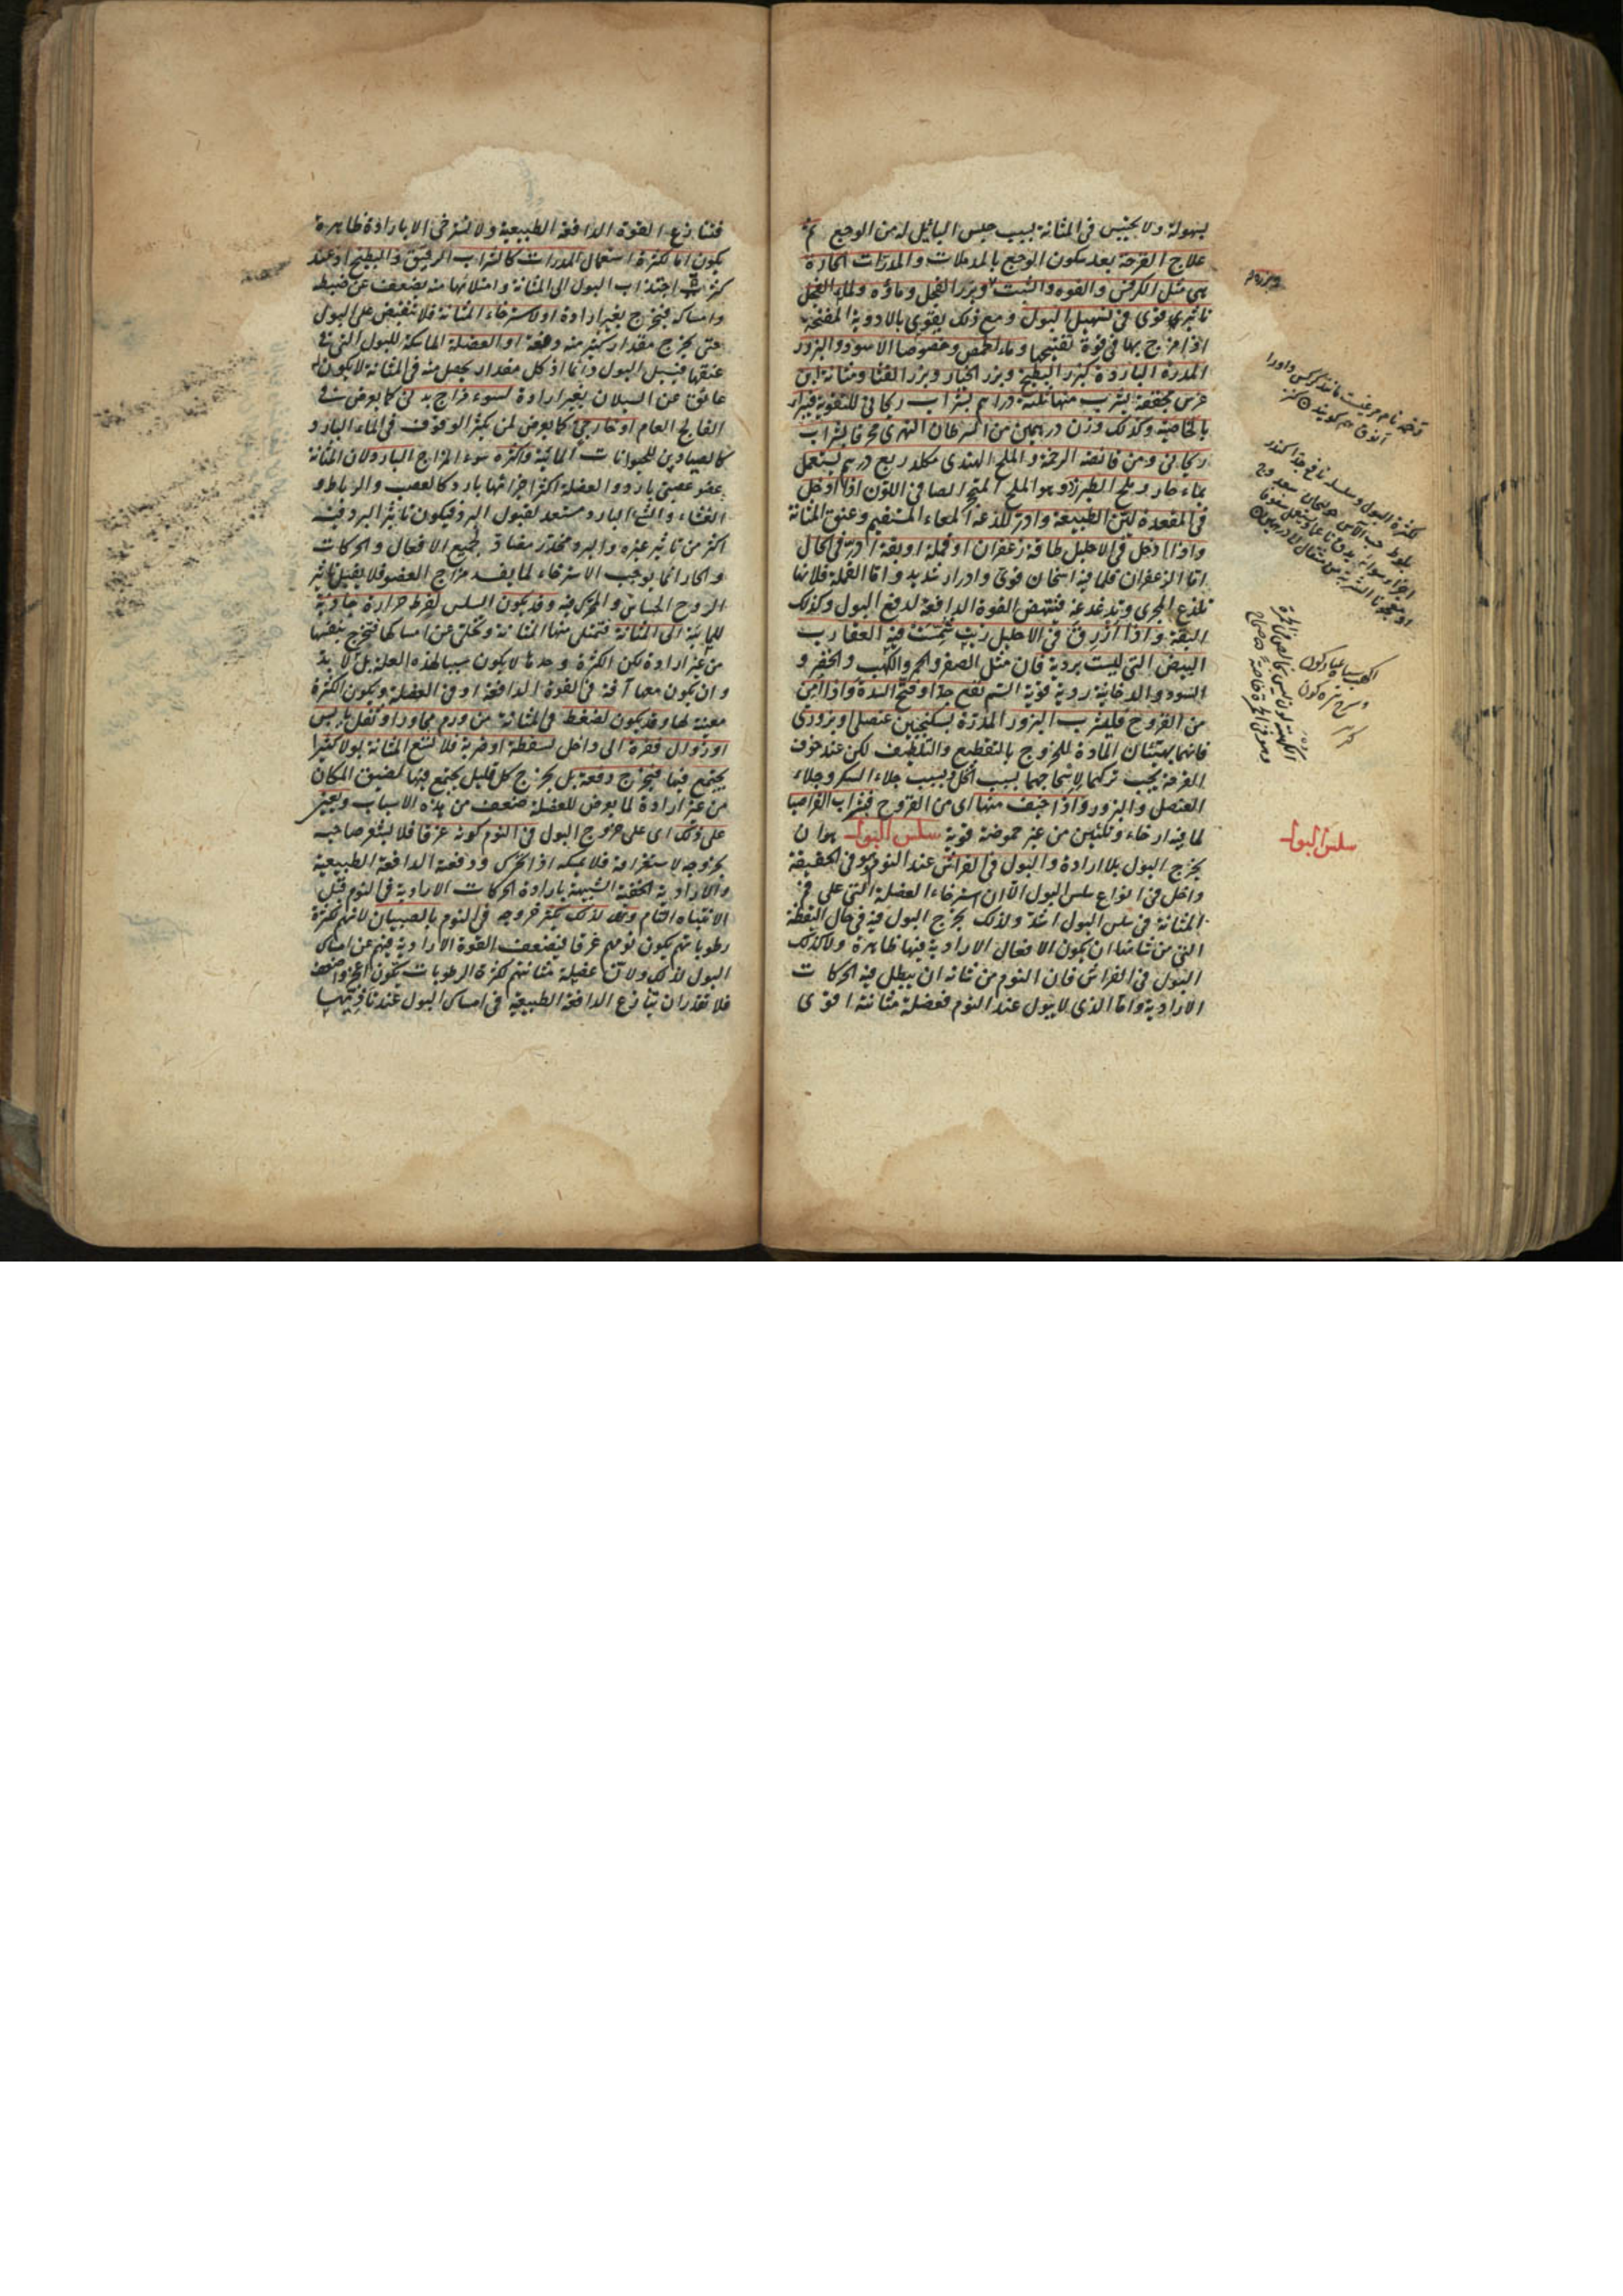 بسهولة ولا يحتبس في المثانة بسبب حبس البائل له من الوجع ثم
علاج القرحة بعد سكون الوجع بالمدملات والمدرات الحارة
هي مثل الكرفس والفوه والشبت وبزر الفجل وماؤه ولماء الفجل
تأثير قوي في تسهيل البول ومع ذلك يقوي بالادوية المفتحة
اذا مزج بها في قوة تفتيحها وماء الحمص وخصوصا الاسود والبزور
المدرة الباردة كبزر البطيخ وبزر الخيار وبزر القثا ومثانة ابن
عرس مجففة يشرب منها ثلثة دراهم بشراب ريحاني للتقوية فيدر
بالخاصية وكذلك وزن درهمين من السرطان النهري محرقا بشراب
ريحاني ومن قانصة الرخمة والملح الهندي مكلد ربع درهم يستعمل
بماء حار وملح الطبرزد وهو الملح المتحجر الصافي اللون اذا ادخل
في المقعدة ليّن الطبيعة وادر للذعه المعاء المستقيم وعنق المثانة
واذا ادخل في الاحليل طاقة زعفران او قملة او بقة ادرّ في الحال
اما الزعفران فلما فيه اسخان قوي وادرار شديد واما القملة فلانها
تلذع المجرى وتدغدغه فتنتهض القوة الدافعة لدفع البول وكذلك
البقة واذا ازرق في الاحليل زيت شمّست فيه العقارب
البيض التي ليست بردية فان مثل الصفر والحمر والكهب والخضر و
السود والدخانية ردية قوية السم نفع جدا وفتح السدة واذا امن
من القروح فليشرب البزور المدرة بسكنجبين عنصلي او بزوري
فانهما يهيئان المادة للخروج بالتقطيع والتلطيف لكن عند خوف
القرحة يجب تركهما لاسحاجهما بسبب الخل وبسبب جلاء السكر وجلاء
العنصل والبزور واذا خيف منها اى من القروح فشراب القراصيا
لما فيه ارخاء وتليين من غير حموضة قوية سلس البول هو ان
يخرج البول بلا ارادة والبول في الفراش عند النوم وهو في الحقيقة
داخل في انواع سلس البول الا ان استرخاء العضلة التي على فم
المثانة في سلس البول اشد ولذلك يخرج البول فيه في حال اليقظة
التي من شانها ان يكون الافعال الارادية فيها ظاهرة ولا كذلك
البول في الفراش فان النوم من شانه ان يبطل فيه الحركات
الارادية واما الذي لا يبول عند النوم فعضلة مثانته اقوى
سلس البول
فتنازع القوة الدافعة الطبيعية ولا تسترخي الا بارادة ظاهرة
يكون اما لكثرة استعمال المدرات كالشراب الرقيق والبطيخ او عند
كثرته اجتذاب البول الى المثانة وامتلائها منه يضعف عن ضبطه
وامساكه فيخرج بغير ارادة او لاسترخاء المثانة فلا تنقبض على البول
حتى يخرج مقدار كثير منه دفعة او العضلة الماسكة للبول التي في
عنقها فيسيل البول دائما اذ كل مقدار يحصل منه في المثانة لا يكون له
عائق عن السيلان بغير ارادة لسوء مزاج بدني كما يعرض في
الفالج العام او خارجي كما يعرض لمن يكثر الوقوف في الماء البارد
كالصيادين للحيوانات المائية واكثره سوء المزاج البارد لان المثانة
عضو عصبي بارد والعضلة اكثر اجزائها بارد كالعصب والرباط و
الغشاء والشئ البارد مستعد لقبول البرد فيكون تاثير البرد فيه
اكثر من تاثير غيره والبرد مخدر مضاد لجميع الافعال والحركات
والحار انما يوجب الاسترخاء لما يفسد مزاج العضو فلا يقبل تاثير
الروح الحساس والمحرك فيه وقد يكون السلس لفرط حرارة جاذبة
للمائية الى المثانة فتمتلئ منها المثانة وتخلى عن امساكها فتخرج بنفسها
من غير ارادة لكن الكثرة وحدها لا يكون سببا لهذه العلة بل لا بد
وان يكون معها آفة في القوة الدافعة او في العضلة ويكون الكثرة
معينة لها وقد يكون لضغط في المثانة من ورم مجاور او ثفل يابس
او زوال فقرة الى داخل لسقطة او ضربة فلا تسع المثانة بولا كثيرا
يجتمع فيها فيخرج دفعة بل يخرج كل قليل يجتمع فيها لضيق المكان
من غير ارادة لما يعرض للعضلة ضعف من هذه الاسباب ويعين
على ذلك اى على خروج البول في النوم كونه غرقا فلا يشعر صاحبه
بخروجه لاستغراقه فلا يمسكه اذا تحرك ودفعه الدافعة الطبيعية
والارادية الخفية الشبيهة بارادة الحركات الارادية في النوم قبل
الانتباه التام ولذلك يكثر خروجه في النوم بالصبيان لانهم لكثرة
رطوباتهم يكون نومهم غرقا فيضعف القوة الارادية فيهم عن امساك
البول لذلك ولان عضلة مثانتهم لكثرة الرطوبات يكون ارخى واضعف
فلا تقدر ان تنازع الدافعة الطبيعية في امساك البول عند تأذيتها